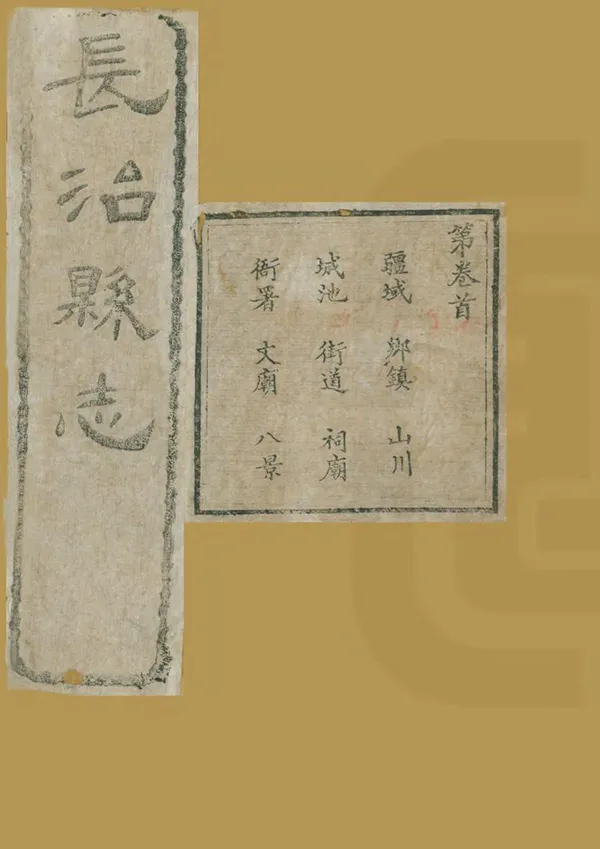 長治縣志
第卷首
疆域 鄉鎮 山川
城池 街道 祠廟
衙署 文廟 八景